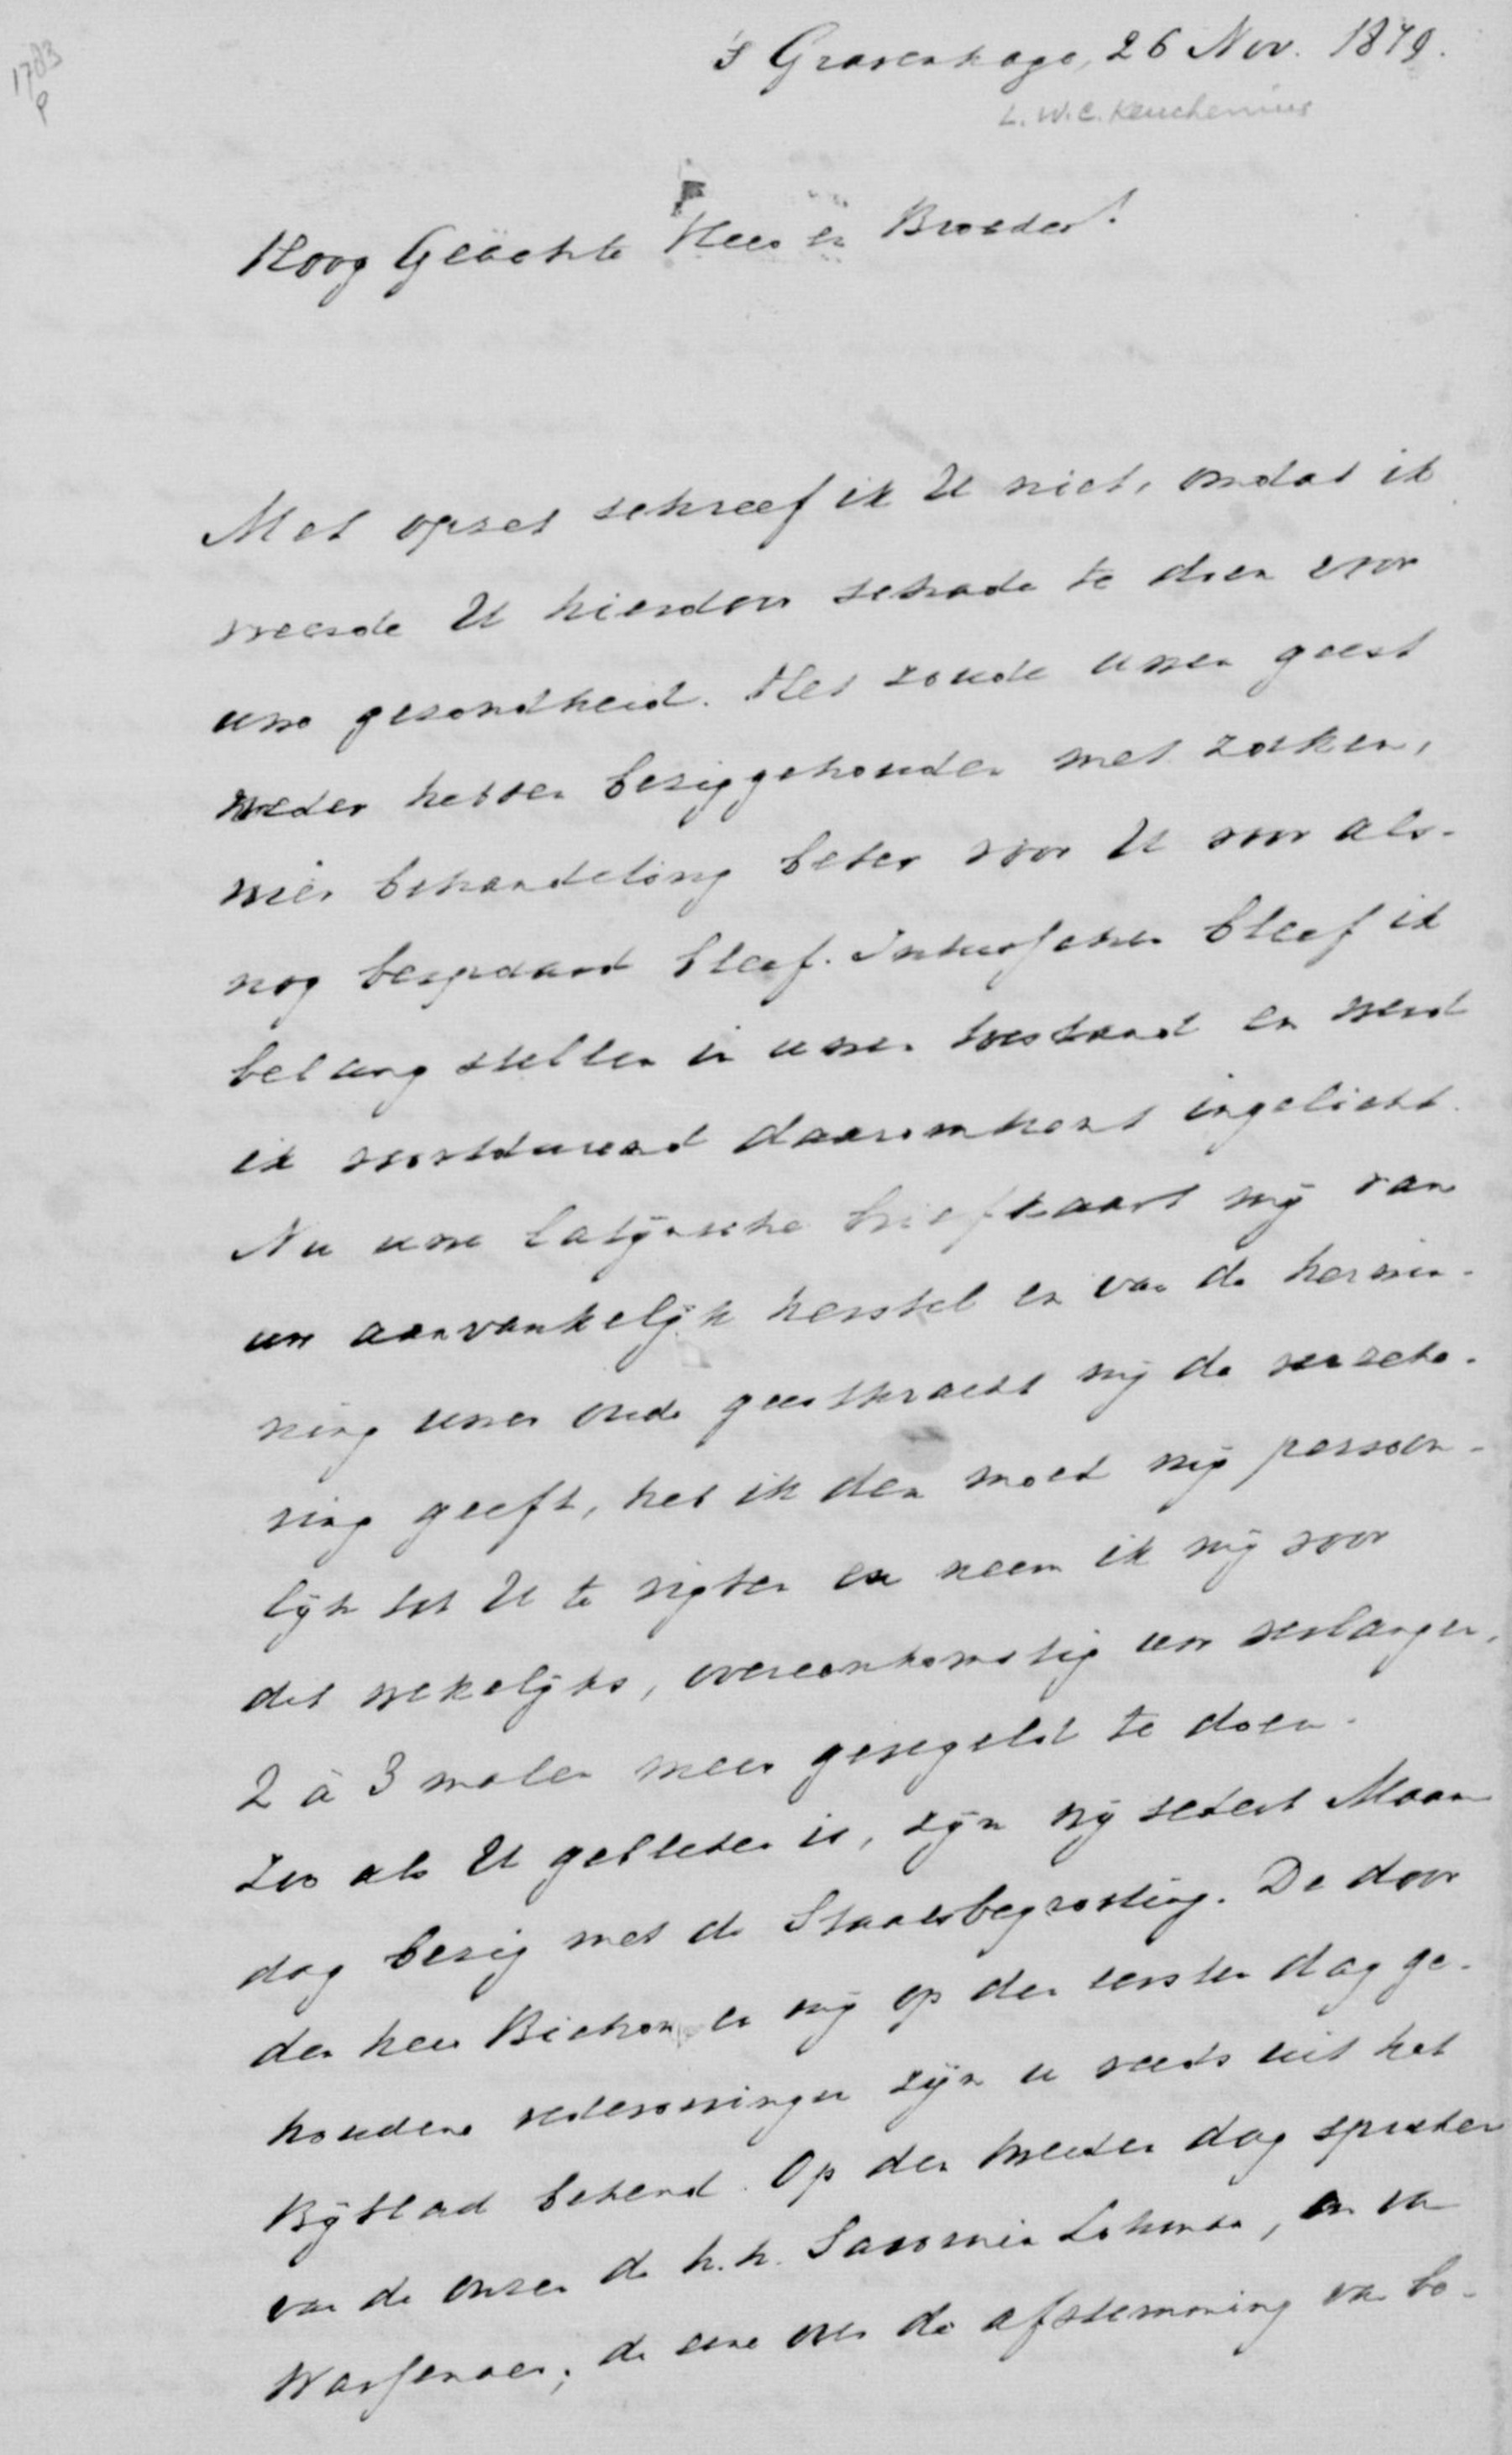 1783
P
's Gravenhage, 26 Nov. 1879.
L.W.C. Keuchenius
Hoog Geachte Heer en Broeder!
Met opzet schreef ik U niet, omdat ik
vreesde U hierdoor schade te doen voor
uwe gezondheid. Het zoude uwen geest
weder hebben beziggehouden met zaken,
wier behandeling beter voor U voor als-
nog bespaard bleef. Intusschen bleef ik
belang stellen in uwen toestand en werd
ik voortdurend daaromtrent ingelicht.
Nu uwe latijnsche briefkaart mij van
uw aanvankelijk herstel en van de herwin-
ning uwer oude geestkracht mij de verzeke-
ring geeft, heb ik den moed mij persoon-
lijk tot U te rigten en neem ik mij voor
dit wekelijks, overeenkomstig uw verlangen,
2 à 3 malen meer geregeld te doen.
Zoo als U gebleken is, zijn wij sedert Maan
dag bezig met de Staatsbegrooting. De door
den heer Bichon en mij op den eersten dag ge-
houdene redevoeringen zijn u reeds uit het
Bijblad bekend. Op den tweeden dag spraken
van de onzen de h.h. Savornin Lohman, en van
Wassenaer; de eene over de afstemming van bo-